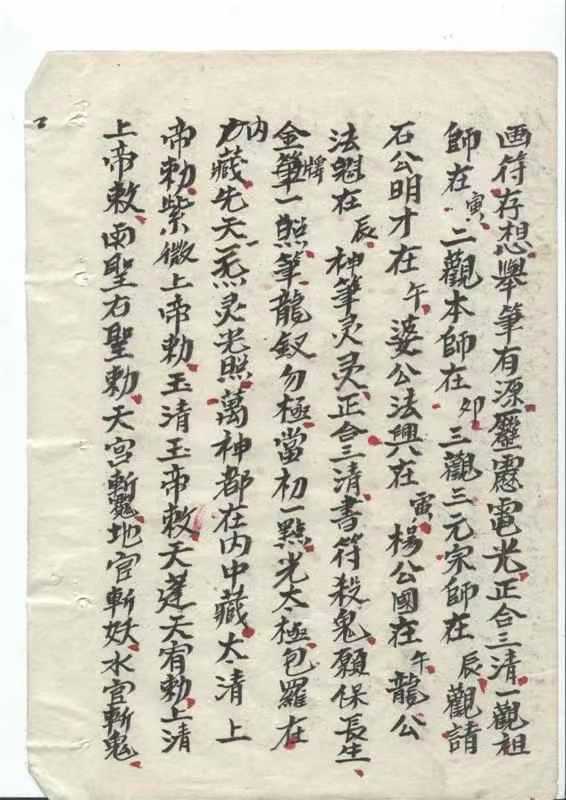 画符存想舉筆有源靂電光正合三清一觀祖
師在寅二觀本師在卯三觀三元宗師在辰觀請
石公明才在午婆公法興八在寅楊公國在午龍公
法魁在辰神筆灵灵正合三清書符殺鬼願保長生
金筆牌一照筆龍釵勿極當初一點光太極包羅在
内方藏先天一炁灵光照萬神都在内中藏太清上
帝勅紫微上帝勅玉清玉帝敕天蓬天宥勅上清
上帝敕南聖右聖勅天宫斬地官斬妖水官斬鬼